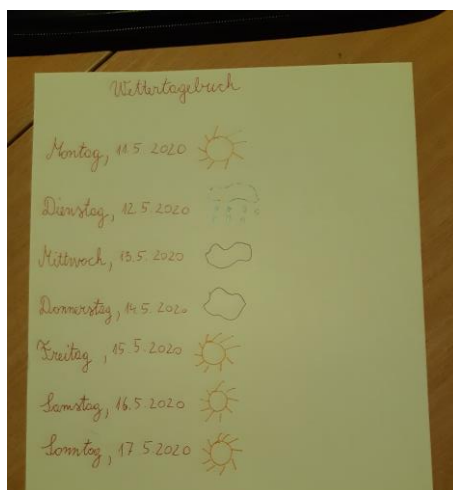 Wettertagebuch
Montag, 11.5.2020
Dienstag, 12.5.2020
Mittwoch, 13.5.2020
Donnerstag, 14.5.2020
Freitag, 15.5.2020
Samstag, 16.5.2020
Sonntag, 17.5.2020